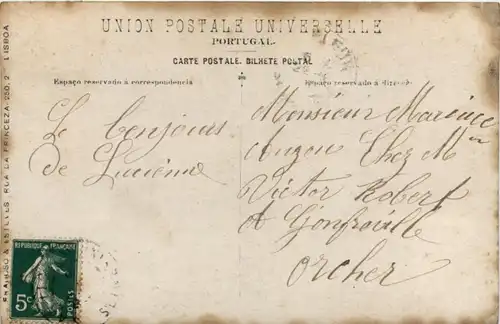 UNION POSTALE UNIVERSELLE
PORTUGAL
CARTE POSTALE. BILHETE POSTAL
Espaço reservado á correspondencia
Espaço reservado á direcç
Le bonjours
de Lucienne
Monsieur Maurice
Auzou Chez Mr
Victor Robert
A Gonfreville
Orcher
REPUBLIQUE FRANÇAISE
5c
POSTES
RUA DA PRINCEZA, 250, 2º LISBOA